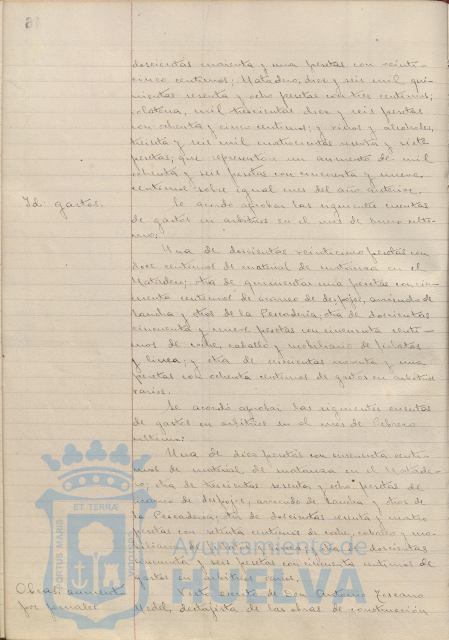 doscientas cuarenta y una pesetas con veinte-
cinco centimos; Matadero, diez y seis mil qui-
nientas sesenta y ocho pesetas con tres centimos;
mil trescientas diez y seis pesetas
con ochenta y cinco centimos; y vinos y alcoholes,
treinta y seis mil cuatrocientas y siete
pesetas; que representan un aumento de mil
ochenta y seis pesetas con cincuenta y nueve
centimos sobre igual mes del año anterior.
Id: gastos.
Se acordó aprobar las siguientes cuentas
de gastos en arbitrios en el mes de Enero ulti-
mo:
Una de doscientas veinticinco pesetas con
doce centimos de material de matanza en el
Matadero; otra de quinientas una pesetas con cin-
cuenta centimos de acarreo de despojos, arriendo de
lancha y otros de la Pescaderia; otra de doscientas
cincuenta y nueve pesetas con cincuenta centi-
mos de caballo y mobiliario de fielatos
y linea; y otra de noventa y una
pesetas con ochenta centimos de gastos en arbitrios
varios.
Se acordó aprobar las siguientes cuentas
de gastos en arbitrios en el mes de Febrero
ultimo:
Una de diez pesetas con cincuenta centi-
mos de material de matanza en el Matade-
ro; otra de trescientas sesenta y ocho pesetas de
acarreo de despojos, arriendo de lancha y otros de
la Pescaderia; otra de doscientas y cuatro
pesetas con centimos de caballo y mo-
doscientas
y seis pesetas con cincuenta centimos de
gastos en arbitrios varios.
Obras: aumento
por jornales
Visto escrito de Don Antonio
destajista de las obras de construcción
PORTUS MARIS
ET TERRÆ
Ayuntamiento de
HUELVA